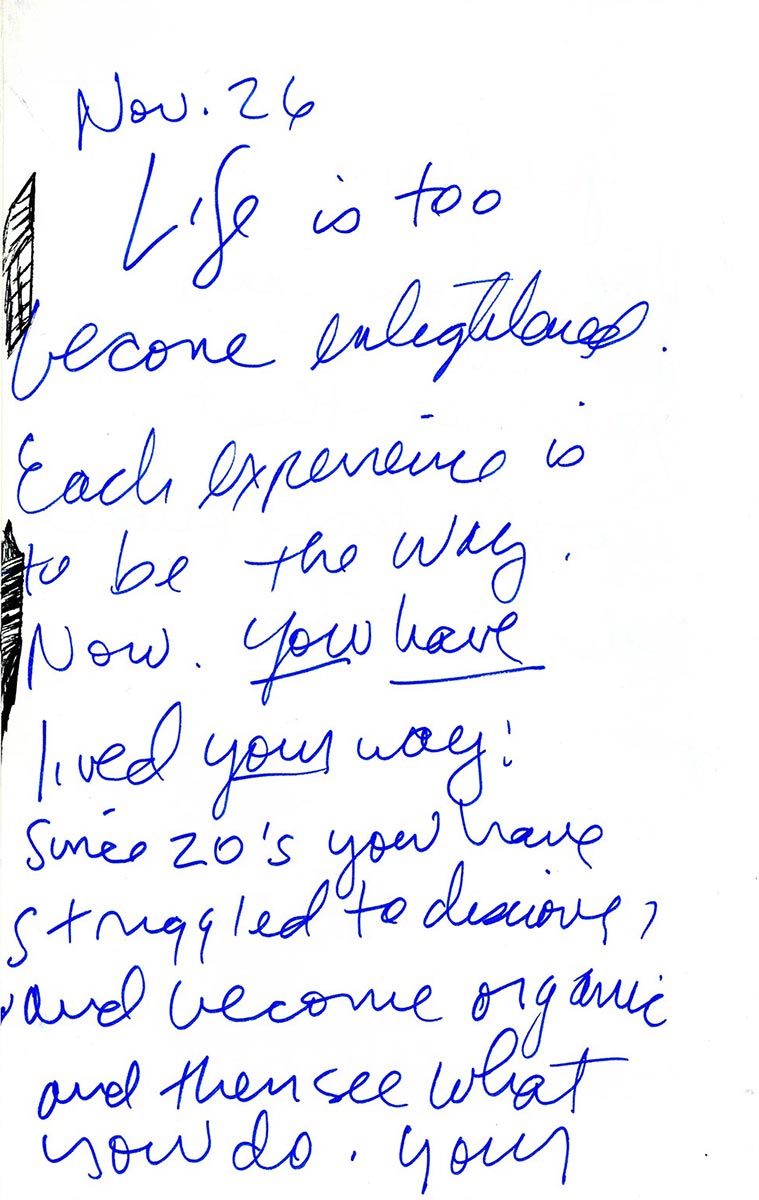 Nov. 26
Life is too
become enlightened.
Each experience is
to be the way.
Now. you have
lived your way:
Since 20's you have
struggled to discover,
and become organic
and then see what
you do. your